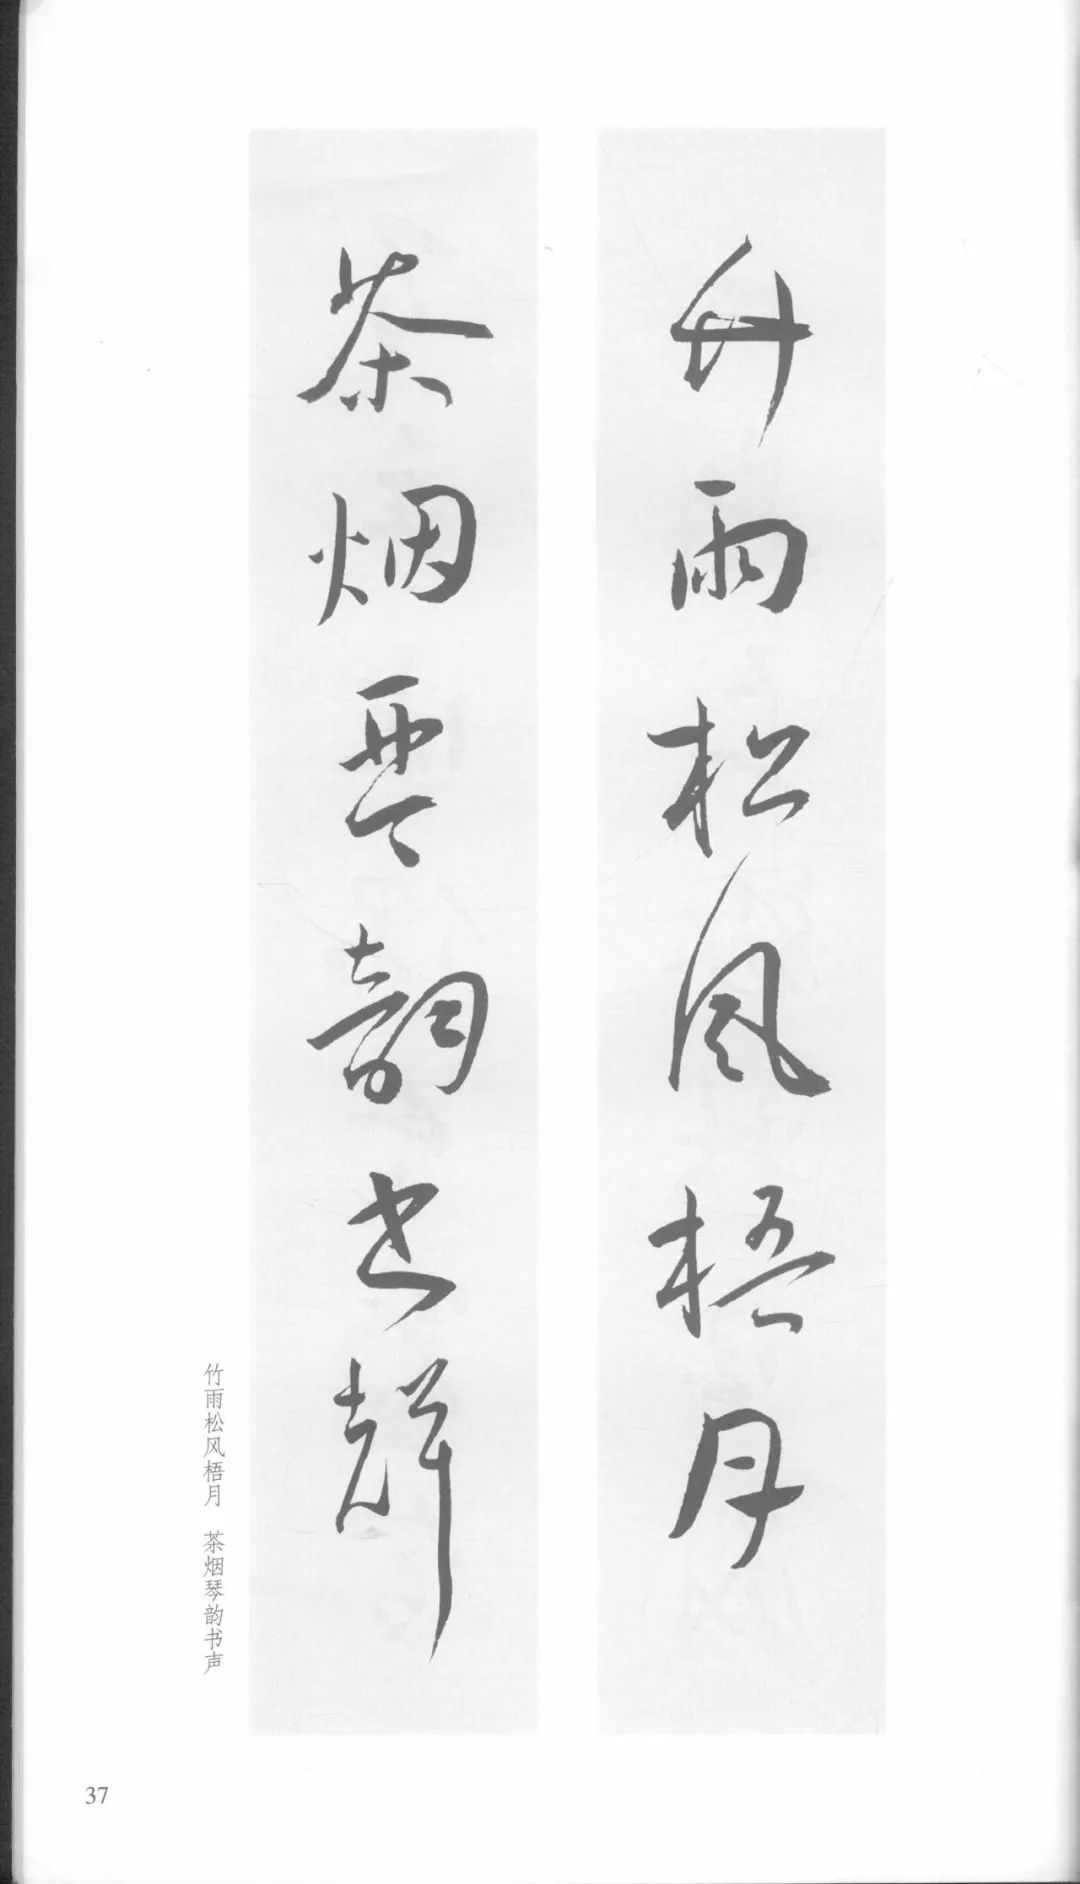 竹雨松風梧月
茶烟琴韵书聲
竹雨松风梧月 茶烟琴韵书声
37